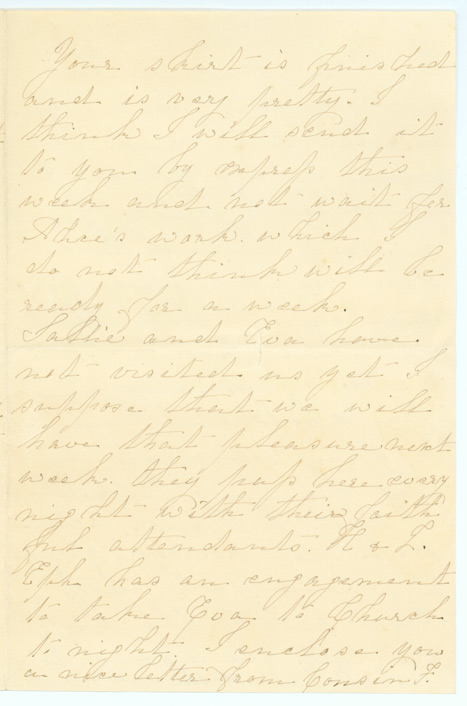 Your skirt is finished
and is very pretty. I
think I will send it
to you by express this
week and not wait for
Alice's work. which I
do not think will be
ready for a week.
Sallie and Eva have
not visited us yet I
suppose that we will
have that pleasure next
week. they pass here every
night with their faith
ful attendants. H & L.
Eph has an engagement
to take Eva to Church
to night. I enclose you
a nice letter from Cousin F.